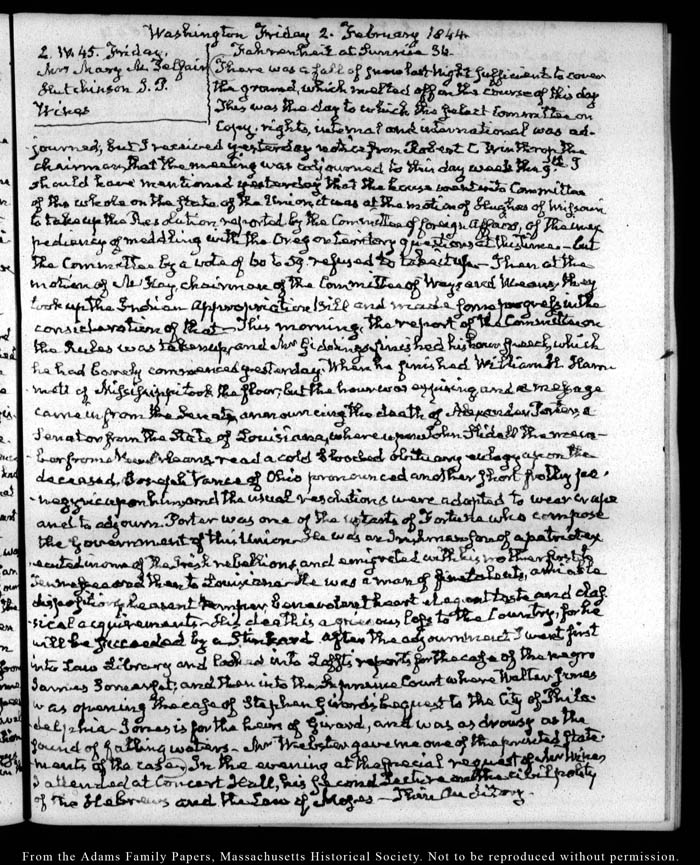 Washington Friday 2. February 1844.
2. IV. 45. Friday.
Mrs Mary M. Telfair
Hutchinson J. P.
Wines
Fahrenheit at Sunrise 36.
There was a fall of snow last Night sufficient to cover
the ground, which melted off in the course of this day
This was the day to which the select Committee on
Copy-rights, internal and international was ad-
journed; but I received yesterday notice from Robert C. Winthrop the
chairman, that the meeting was adjourned to this day week the 9th I
should have mentioned yesterday that the house went into Committee
of the whole on the state of the Union, it was at the motion of Hughes of Missouri
to take up the Resolution, reported by the Committee of foreign Affairs, of the inex-
pediency of meddling with the Oregon territory questions at this time – but
the Committee by a vote of to 59 refused to take it up. – Then at the
motion of McKay, chairman of the Committee of Ways and Means, they
took up the Indian Appropriation Bill and made some progress in the
consideration of that – This morning, the report of the Committee on
the Rules was taken up, and Mr Giddings finished his hour speech, which
he had barely commenced yesterday. When he finished William H. Ham-
mett of Mississippi took the floor, but the hour was expiring and a message
came in from the Senate, announcing the death of Alexander Porter, a
Senator from the State of Louisiana, whereupon John Slidell the mem-
ber from New Orleans, read a cold blooded obituary eulogy upon the
deceased, Joseph Vance of Ohio pronounced another short frothy pa-
negyric upon him, and the usual resolutions were adopted to wear crape
and to adjourn. Porter was one of the upstarts of Fortune who compose
the Government of this Union. He was an Irishman, son of a patriot ex-
ecuted in one of the Irish rebellions, and emigrated with his mother first to
Tennessee and then to Louisiana – He was a man of fine talents, amiable
disposition, pleasant temper, benevolent heart elegant taste and clas-
sical acquirements – His death is a grievous loss to the Country, for he
will be succeeded by a Stinkard. After the adjournment I went first
into Law Library and looked into Lofft's reports for the case of the negro
James Somerset; and then into the Supreme Court where Walter Jones
was opening the case of Stephen Girard's bequest to the City of Phila-
delphia – Jones is for the heirs of Girard, and was as drowsy as the
sound of falling waters – Mr Webster gave me one of the printed State-
ments of the case. In the evening at the special request of Mr Wines
I attended at Concert Hall, his second Lecture on the civil polity
of the Hebrews and the Law of Moses – Thin Auditory.
From the Adams Family Papers, Massachusetts Historical Society. Not to be reproduced without permission.